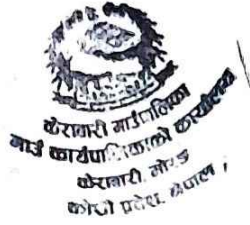 केराबारी गाउँपालिका
गाउँ कार्यपालिकाको कार्यालय
केराबारी, मोरङ
कोशी प्रदेश, नेपाल ।